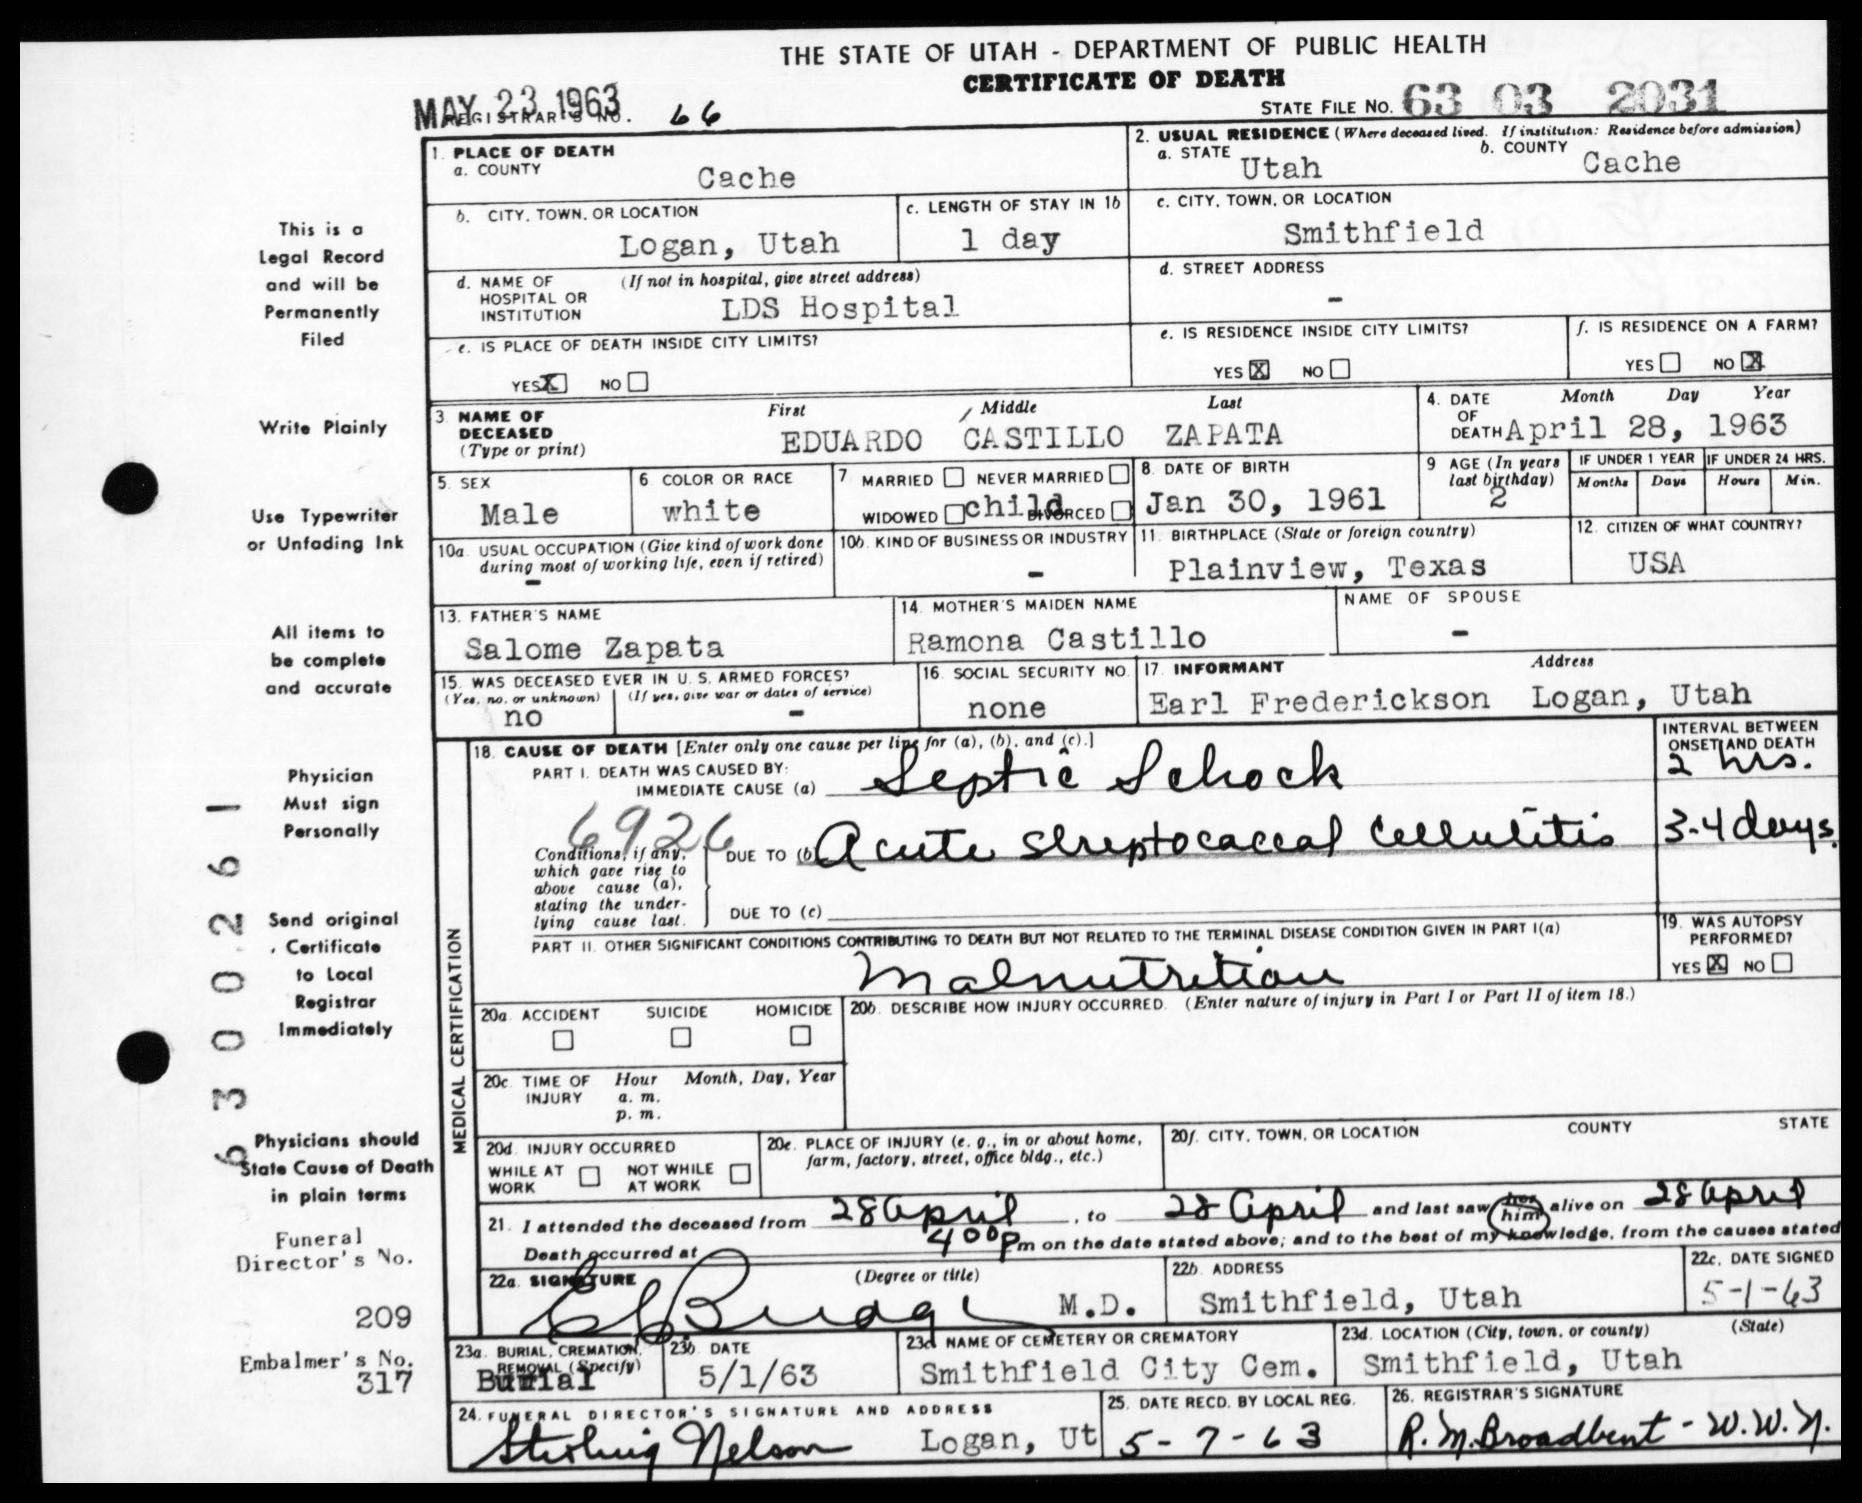 THE STATE OF UTAH - DEPARTMENT OF PUBLIC HEALTH
CERTIFICATE OF DEATH
MAY 23 1963
REGISTRAR'S NO. 66
STATE FILE NO. 63 03 2031
1. PLACE OF DEATH
a. COUNTY
Cache
2. USUAL RESIDENCE (Where deceased lived. If institution: Residence before admission)
a. STATE Utah
b. COUNTY Cache
b. CITY, TOWN, OR LOCATION
Logan, Utah
c. LENGTH OF STAY IN 1b
1 day
c. CITY, TOWN, OR LOCATION
Smithfield
d. NAME OF HOSPITAL OR INSTITUTION
(If not in hospital, give street address)
LDS Hospital
d. STREET ADDRESS
-
e. IS PLACE OF DEATH INSIDE CITY LIMITS?
YES X NO
e. IS RESIDENCE INSIDE CITY LIMITS?
YES X NO
f. IS RESIDENCE ON A FARM?
YES NO X
3. NAME OF DECEASED
(Type or print)
First Middle Last
EDUARDO CASTILLO ZAPATA
4. DATE OF DEATH
Month Day Year
April 28, 1963
5. SEX
Male
6 COLOR OR RACE
white
7 MARRIED NEVER MARRIED
WIDOWED child DIVORCED
8. DATE OF BIRTH
Jan 30, 1961
9 AGE (In years last birthday)
2
IF UNDER 1 YEAR
Months Days
IF UNDER 24 HRS.
Hours Min.
10a. USUAL OCCUPATION (Give kind of work done during most of working life, even if retired)
-
10b. KIND OF BUSINESS OR INDUSTRY
-
11. BIRTHPLACE (State or foreign country)
Plainview, Texas
12. CITIZEN OF WHAT COUNTRY?
USA
13. FATHER'S NAME
Salome Zapata
14. MOTHER'S MAIDEN NAME
Ramona Castillo
NAME OF SPOUSE
-
15. WAS DECEASED EVER IN U. S. ARMED FORCES?
(Yes, no, or unknown) (If yes, give war or dates of service)
no -
16. SOCIAL SECURITY NO.
none
17. INFORMANT Address
Earl Frederickson Logan, Utah
MEDICAL CERTIFICATION
18. CAUSE OF DEATH [Enter only one cause per line for (a), (b), and (c).]
INTERVAL BETWEEN ONSET AND DEATH
PART I. DEATH WAS CAUSED BY:
IMMEDIATE CAUSE (a) Septic Schock
2 hrs.
6926
Conditions, if any, which gave rise to above cause (a), stating the underlying cause last.
DUE TO (b) Acute streptococcal cellulitis
3-4 days.
DUE TO (c)
PART II. OTHER SIGNIFICANT CONDITIONS CONTRIBUTING TO DEATH BUT NOT RELATED TO THE TERMINAL DISEASE CONDITION GIVEN IN PART I(a)
Malnutrition
19. WAS AUTOPSY PERFORMED?
YES X NO
20a. ACCIDENT SUICIDE HOMICIDE
20b. DESCRIBE HOW INJURY OCCURRED. (Enter nature of injury in Part I or Part II of item 18.)
20c. TIME OF INJURY
Hour Month, Day, Year
a. m.
p. m.
20d. INJURY OCCURRED
WHILE AT WORK NOT WHILE AT WORK
20e. PLACE OF INJURY (e. g., in or about home, farm, factory, street, office bldg., etc.)
20f. CITY, TOWN, OR LOCATION COUNTY STATE
21. I attended the deceased from 28 April, to 28 April and last saw her him alive on 28 April
Death occurred at 400 p m on the date stated above; and to the best of my knowledge, from the causes stated
22a. SIGNATURE (Degree or title)
C C Budge M.D.
22b. ADDRESS
Smithfield, Utah
22c. DATE SIGNED
5-1-63
23a. BURIAL, CREMATION, REMOVAL (Specify)
Burial
23b DATE
5/1/63
23c NAME OF CEMETERY OR CREMATORY
Smithfield City Cem.
23d. LOCATION (City, town, or county) (State)
Smithfield, Utah
24. FUNERAL DIRECTOR'S SIGNATURE AND ADDRESS
Sterling Nelson Logan, Ut
25. DATE RECD. BY LOCAL REG.
5-7-63
26. REGISTRAR'S SIGNATURE
R. M. Broadbent - W. W. N.
This is a
Legal Record
and will be
Permanently
Filed
Write Plainly
Use Typewriter
or Unfading Ink
All items to
be complete
and accurate
Physician
Must sign
Personally
Send original
Certificate
to Local
Registrar
Immediately
Physicians should
State Cause of Death
in plain terms
Funeral
Director's No.
209
Embalmer's No.
317
6300261